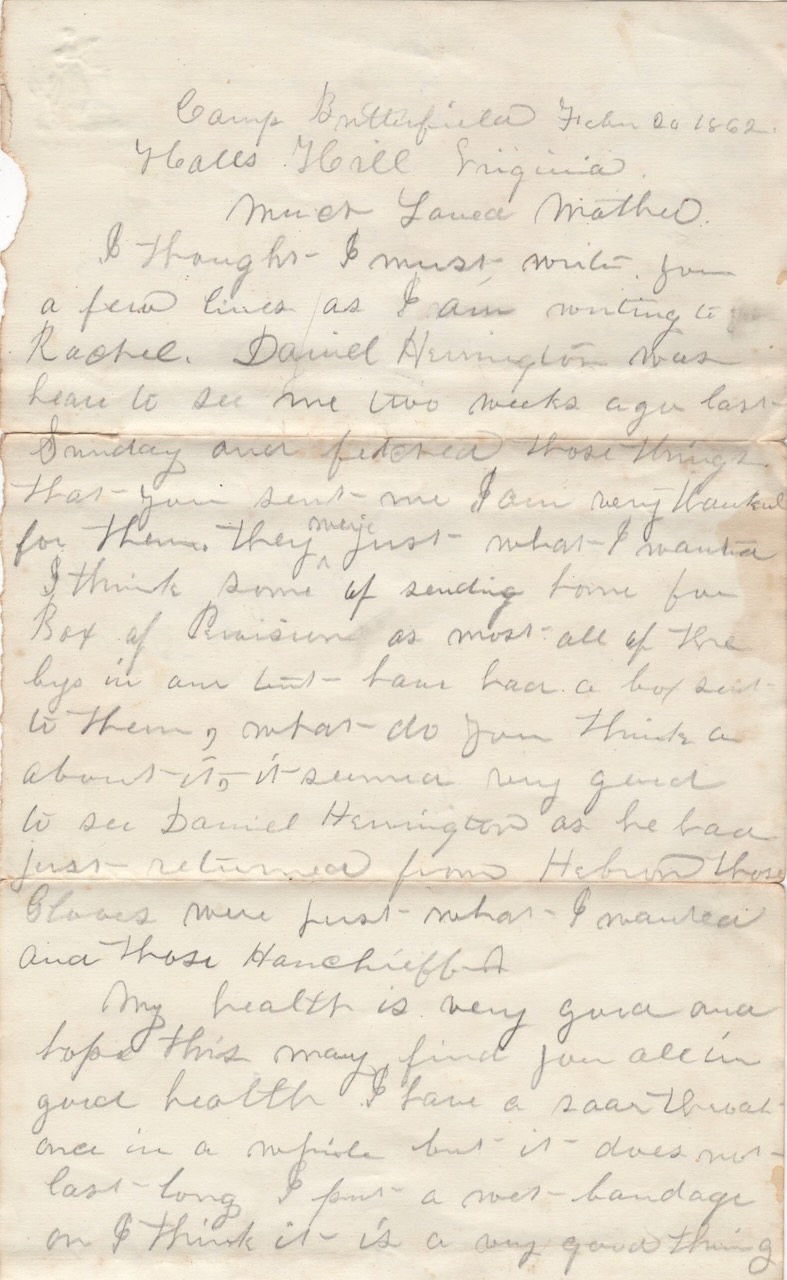 Camp Butterfield Febr 20 1862.
Halls Hill Virginia.
Much Loved Mother.
I thought I must write you
a few lines as I am writing to
Rachel. Daniel Herrington was
heare to see me two weeks ago last
Sunday and fetched those things
that you sent me I am very thankful
for them. they were just what I wanted
I think some of sending home for
Box of Provision as most all of the
boys in our tent have had a box sent
to them, what do you think a
about it, it seemed very good
to see Daniel Herrington as he had
just returned from Hebron those
Gloves were just what I wanted
and those Hanchieffs
My health is very good and
hope this may find you all in
good health I have a soar throat
once in a while but it does not
last long I put a wet bandage
on I think it is a very good thing